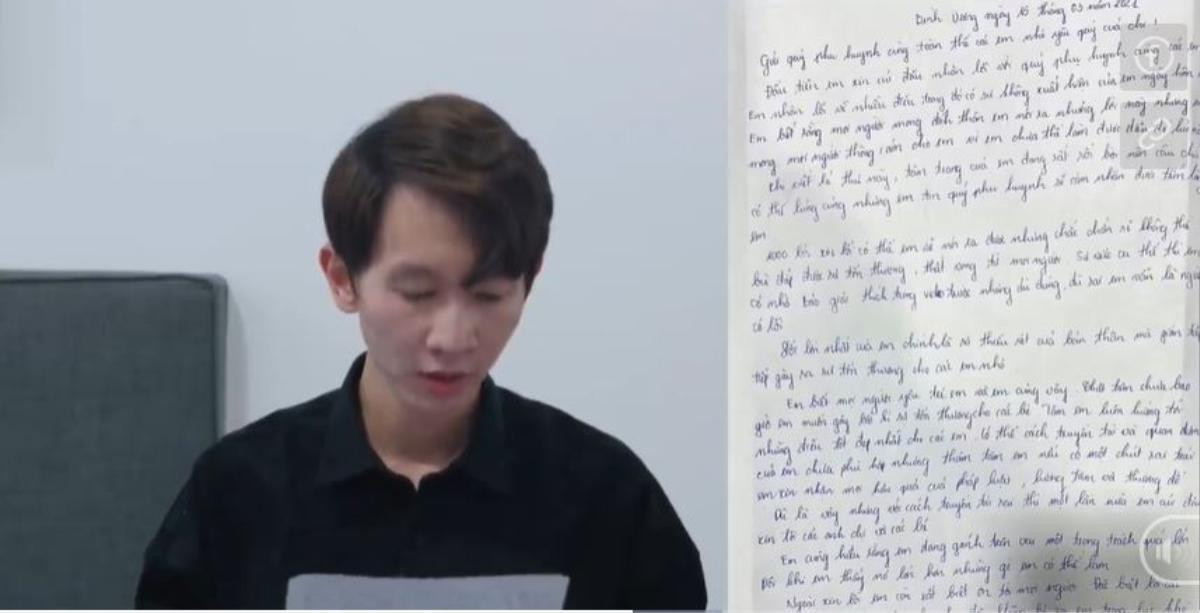 Bình Dương ngày 15 tháng 03 năm 2021
Gửi quý phụ huynh cùng toàn thể các em nhỏ yêu quý của chị,
Đầu tiên em xin cúi đầu nhận lỗi với quý phụ huynh cùng các em
Em nhận lỗi về nhiều điều trong đó có sự không xuất hiện của em ngày hôm
Em biết rằng mọi người mong đích thân em nói ra những lời này nhưng
mong mọi người thông cảm cho em vì em chưa thể làm được điều đó
Chị viết lá thư này, tâm trạng của em đang rất rối bời nên câu
có thể lủng củng nhưng em tin quý phụ huynh sẽ cảm nhận được tâm
em
1000 lời xin lỗi có thể em sẽ nói ra được nhưng chắc chắn sẽ không thể
bù đắp được sự tổn thương, thất vọng từ mọi người. Sự việc cụ thể thì em
có nhờ giải thích từng trước nhưng dù đúng, dù sai em vẫn là người
có lỗi
lớn nhất của em chính là sự thiếu sót của bản thân mà gián
tiếp gây ra sự tổn thương cho các em nhỏ
Em biết mọi người yêu trẻ em và em cũng vậy. Thật tâm chưa bao
giờ em muốn gây bất kì sự tổn thương cho các bé. Tâm em luôn hướng tới
những điều tốt đẹp nhất cho các em. Có thể cách truyền tải và quan điểm
của em chưa phù hợp nhưng thâm tâm em nếu có một chút sai trái
em xin nhận mọi hậu quả của pháp luật, lương tâm và thượng đế
Dù là vậy nhưng với cách truyền tải sai thì một lần nữa em cúi đầu
xin lỗi các anh chị và các bé
Em cũng hiểu rằng em đang gánh trên vai một trọng trách quá lớn
Đôi khi em thấy nó lớn hơn những gì em có thể làm
Ngoài xin lỗi em còn rất biết ơn từ mọi người. Đặc biệt là